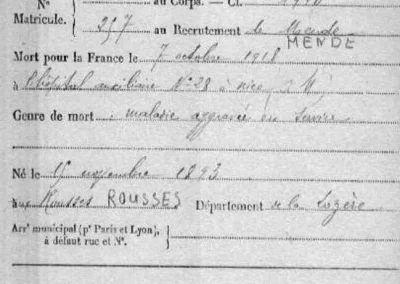 N°
au Corps. — Cl. 1910
Matricule. 257 au Recrutement de Mende
MENDE
Mort pour la France le 7 octobre 1918
à l'Hôpital auxiliaire N° 28 à Nice
Genre de mort : maladie aggravée en service
Né le novembre 1893
aux Rousses ROUSSES Département de la Lozère
Arr' municipal (p' Paris et Lyon),
à défaut rue et N°.